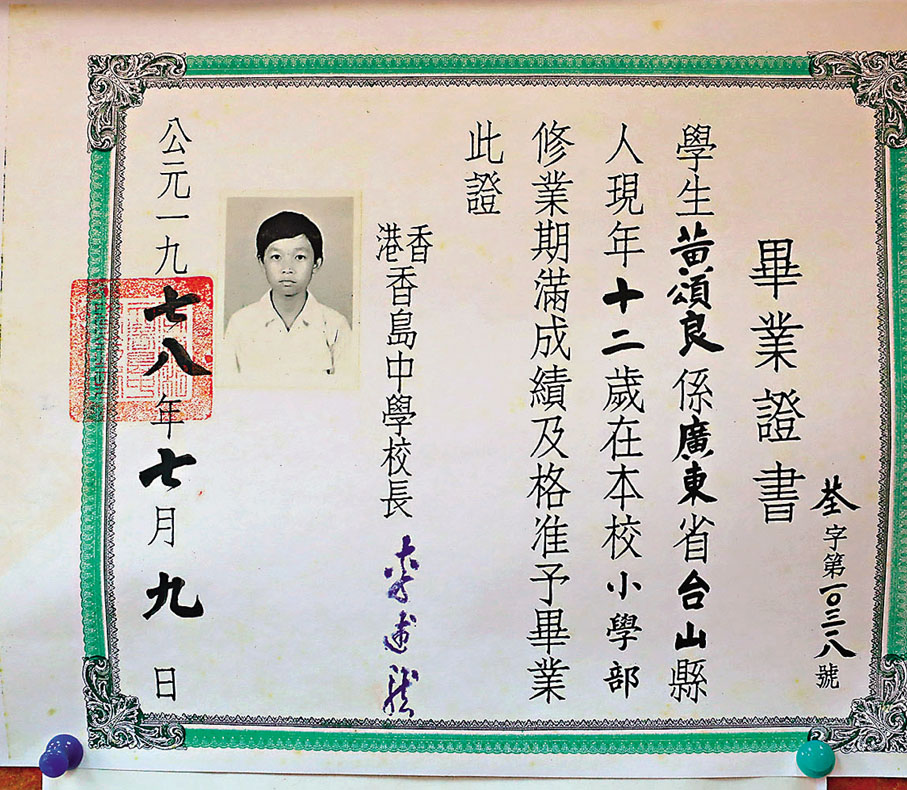 荃字第一〇三八號
畢業證書
學生黃頌良係廣東省台山縣
人現年十二歲在本校小學部
修業期滿成績及格准予畢業
此證
香港香島中學校長
公元一九七八年七月九日